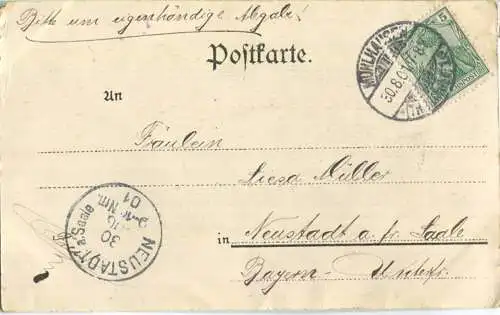 Bitte um eigenhändige Abgabe!
Postkarte.
5
MÜHLHAUSEN
30.8.01
An
Fräulein
Liesa Müller
in Neustadt a. fr. Saale
Bayern - Unterfr.
NEUSTADT
a. Saale
30
AUG
9-10 Nm.
01